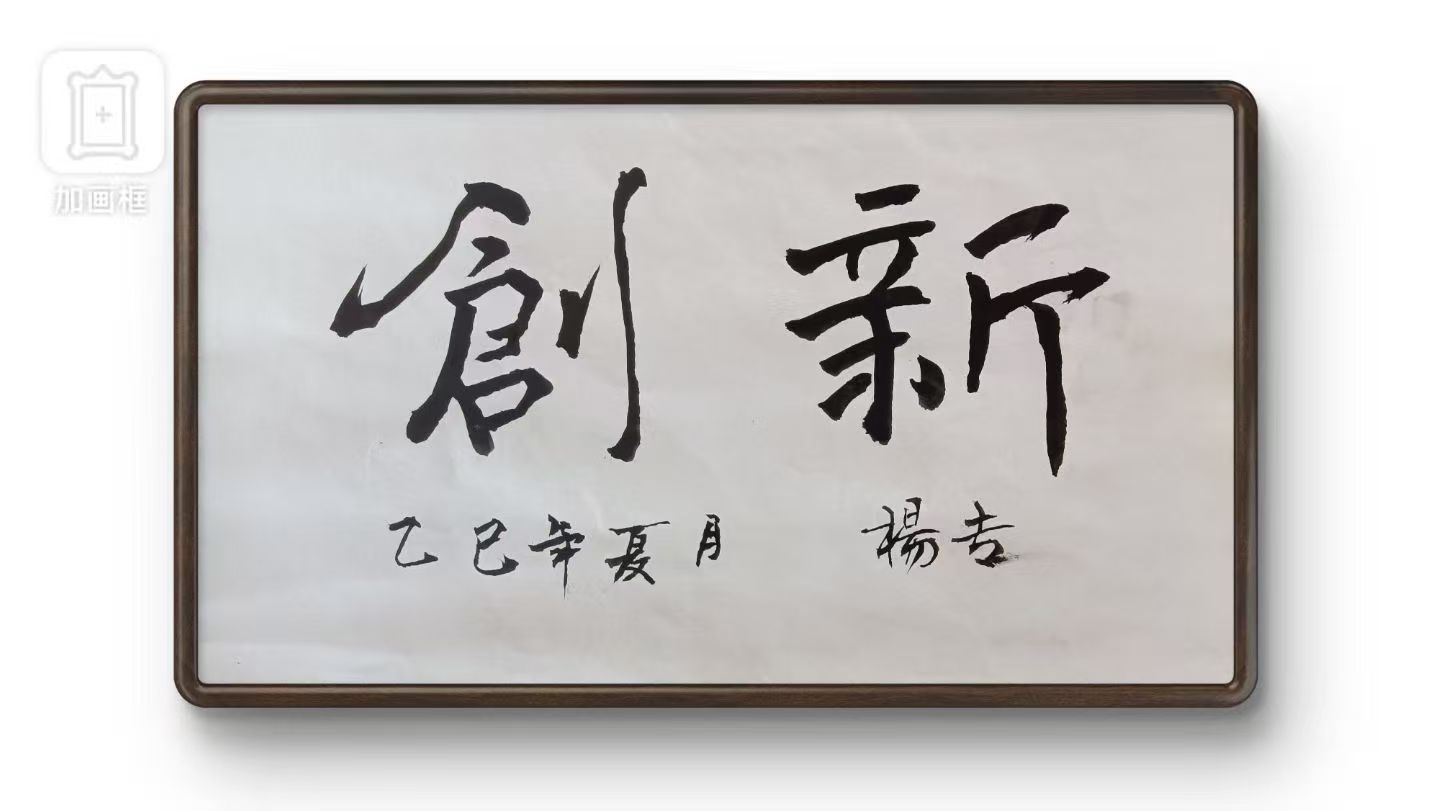 加画框
創新
乙巳年夏月 楊吉